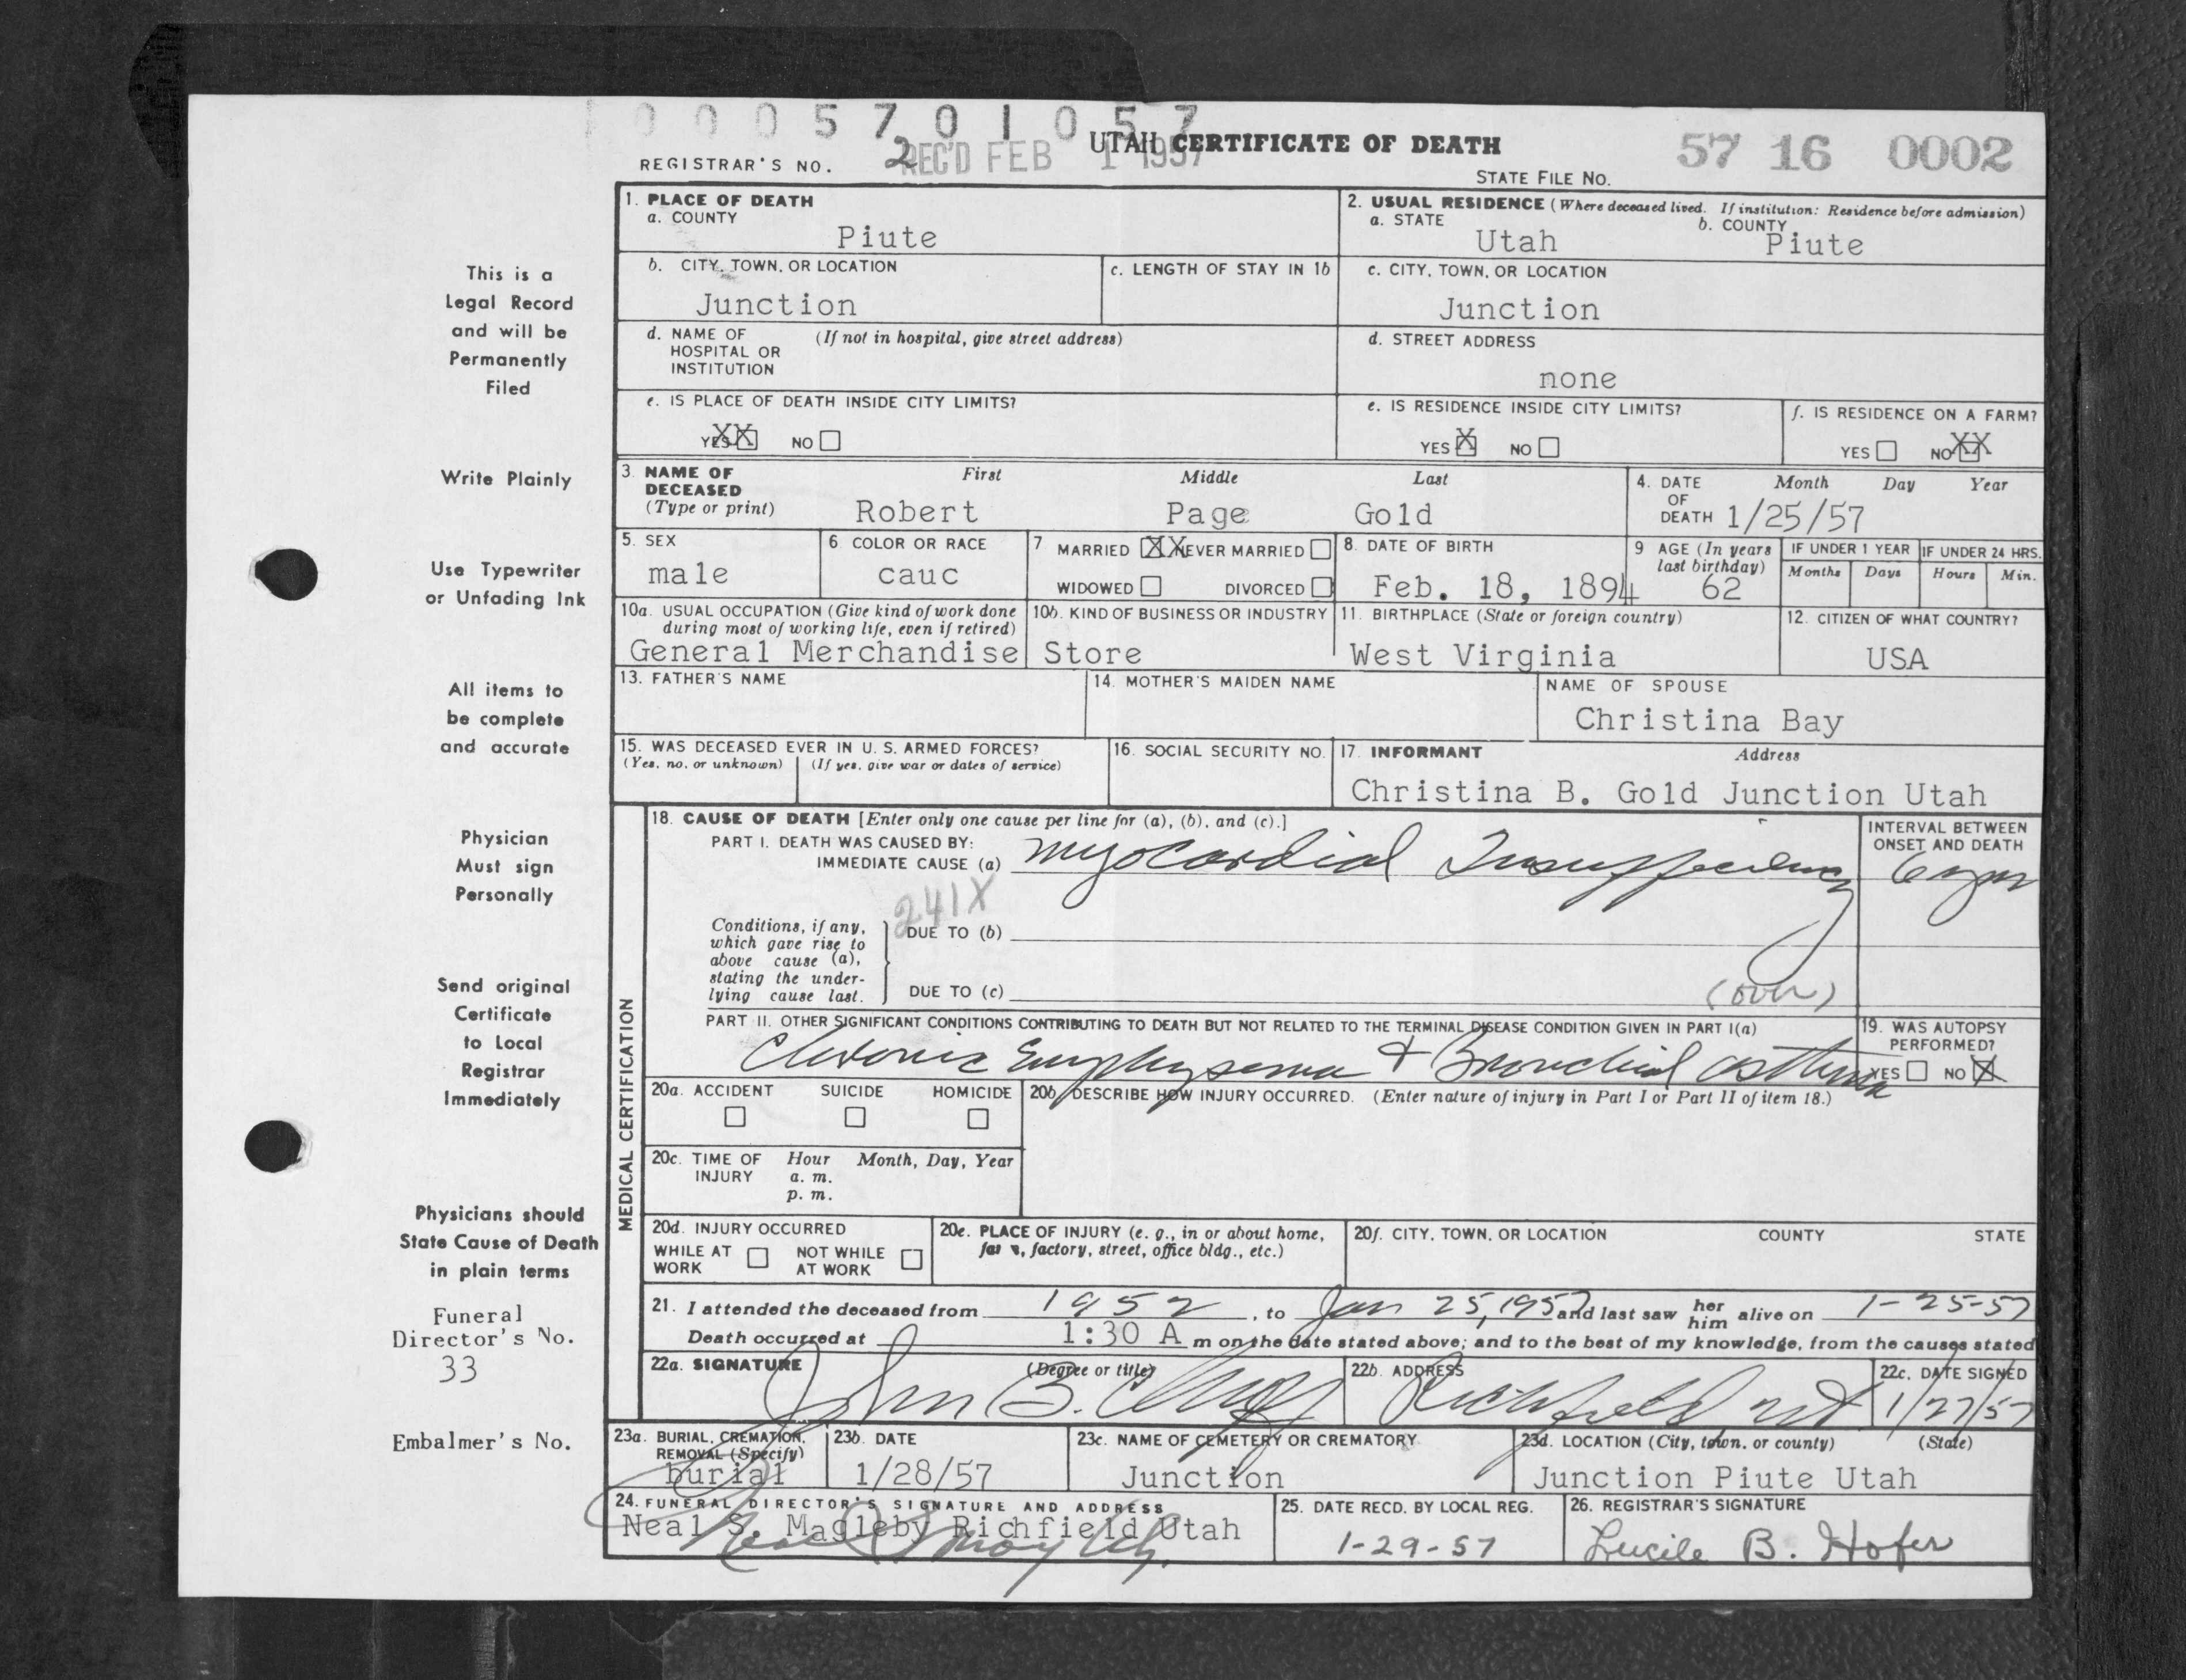 0005701057
UTAH CERTIFICATE OF DEATH
57 16 0002
REGISTRAR'S NO. 2
REC'D FEB 1 1957
STATE FILE NO.
1. PLACE OF DEATH
a. COUNTY
Piute
2. USUAL RESIDENCE (Where deceased lived. If institution: Residence before admission)
a. STATE
Utah
b. COUNTY
Piute
b. CITY, TOWN, OR LOCATION
Junction
c. LENGTH OF STAY IN 1b
c. CITY, TOWN, OR LOCATION
Junction
d. NAME OF HOSPITAL OR INSTITUTION
(If not in hospital, give street address)
d. STREET ADDRESS
none
e. IS PLACE OF DEATH INSIDE CITY LIMITS?
YES XX NO
e. IS RESIDENCE INSIDE CITY LIMITS?
YES X NO
f. IS RESIDENCE ON A FARM?
YES NO XX
3. NAME OF DECEASED (Type or print)
First Middle Last
Robert Page Gold
4. DATE OF DEATH
Month Day Year
1/25/57
5. SEX
male
6. COLOR OR RACE
cauc
7. MARRIED XX NEVER MARRIED
WIDOWED DIVORCED
8. DATE OF BIRTH
Feb. 18, 1894
9 AGE (In years last birthday)
62
IF UNDER 1 YEAR
Months Days
IF UNDER 24 HRS.
Hours Min.
10a. USUAL OCCUPATION (Give kind of work done during most of working life, even if retired)
General Merchandise
10b. KIND OF BUSINESS OR INDUSTRY
Store
11. BIRTHPLACE (State or foreign country)
West Virginia
12. CITIZEN OF WHAT COUNTRY?
USA
13. FATHER'S NAME
14. MOTHER'S MAIDEN NAME
NAME OF SPOUSE
Christina Bay
15. WAS DECEASED EVER IN U. S. ARMED FORCES?
(Yes, no, or unknown) (If yes, give war or dates of service)
16. SOCIAL SECURITY NO.
17. INFORMANT Address
Christina B. Gold Junction Utah
MEDICAL CERTIFICATION
18. CAUSE OF DEATH [Enter only one cause per line for (a), (b), and (c).]
PART I. DEATH WAS CAUSED BY:
IMMEDIATE CAUSE (a) Myocardial Insufficiency
INTERVAL BETWEEN ONSET AND DEATH
241X
Conditions, if any, which gave rise to above cause (a), stating the underlying cause last.
DUE TO (b)
DUE TO (c) (over)
PART II. OTHER SIGNIFICANT CONDITIONS CONTRIBUTING TO DEATH BUT NOT RELATED TO THE TERMINAL DISEASE CONDITION GIVEN IN PART I(a)
Chronic Emphysema + Bronchial asthma
19. WAS AUTOPSY PERFORMED?
YES NO X
20a. ACCIDENT SUICIDE HOMICIDE
20b. DESCRIBE HOW INJURY OCCURRED. (Enter nature of injury in Part I or Part II of item 18.)
20c. TIME OF INJURY
Hour Month, Day, Year
a. m.
p. m.
20d. INJURY OCCURRED
WHILE AT WORK NOT WHILE AT WORK
20e. PLACE OF INJURY (e. g., in or about home, farm, factory, street, office bldg., etc.)
20f. CITY, TOWN, OR LOCATION COUNTY STATE
21. I attended the deceased from 1952, to Jan 25, 1957 and last saw her him alive on 1-25-57
Death occurred at 1:30 A m on the date stated above; and to the best of my knowledge, from the causes stated
22a. SIGNATURE (Degree or title)
John B. Cluff
22b. ADDRESS
Richfield Ut
22c. DATE SIGNED
1/27/57
23a. BURIAL, CREMATION, REMOVAL (Specify)
burial
23b. DATE
1/28/57
23c. NAME OF CEMETERY OR CREMATORY
Junction
23d. LOCATION (City, town, or county) (State)
Junction Piute Utah
24. FUNERAL DIRECTOR'S SIGNATURE AND ADDRESS
Neal S. Magleby Richfield Utah
Neal S Magleby
25. DATE RECD. BY LOCAL REG.
1-29-57
26. REGISTRAR'S SIGNATURE
Lucile B. Hofer
This is a
Legal Record
and will be
Permanently
Filed
Write Plainly
Use Typewriter
or Unfading Ink
All items to
be complete
and accurate
Physician
Must sign
Personally
Send original
Certificate
to Local
Registrar
Immediately
Physicians should
State Cause of Death
in plain terms
Funeral
Director's No.
33
Embalmer's No.